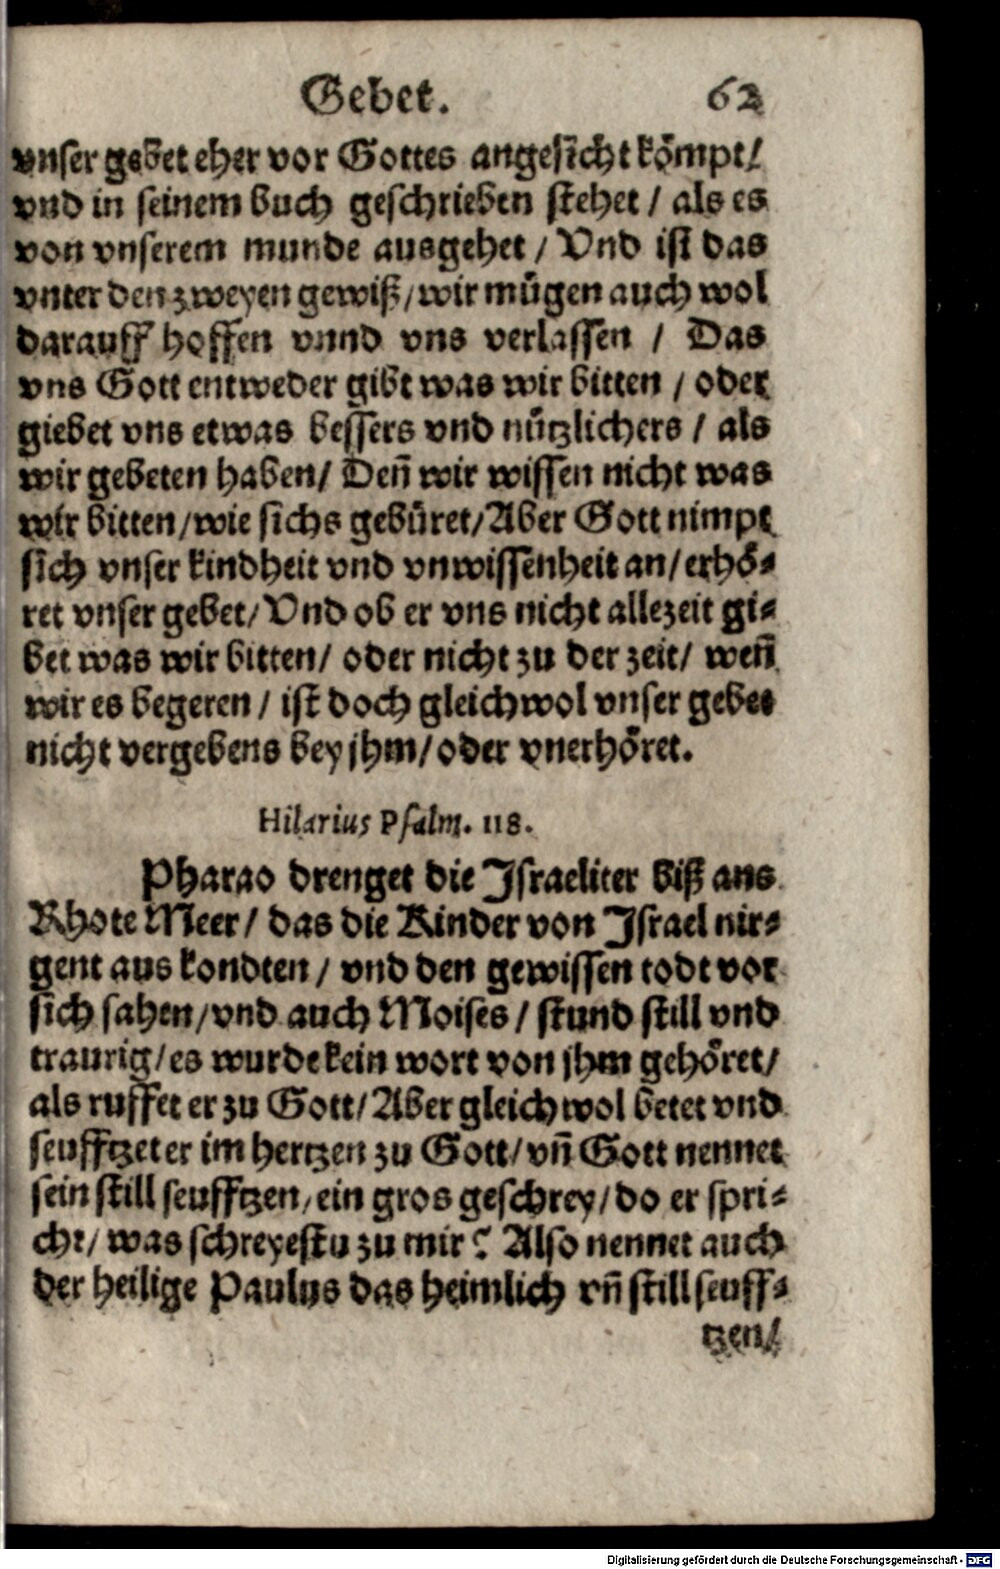 Gebet. 62
vnser gebet eher vor Gottes angesicht kömpt/
vnd in seinem buch geschrieben stehet / als es
von vnserem munde ausgehet / Vnd ist das
vnter den zweyen gewiß/wir mügen auch wol
darauff hoffen vnnd vns verlassen / Das
vns Gott entweder gibt was wir bitten / oder
giebet vns etwas bessers vnd nützlichers / als
wir gebeten haben/ Deñ wir wissen nicht was
wir bitten/wie sichs gebüret/Aber Gott nimpt
sich vnser kindheit vnd vnwissenheit an/erhö-
ret vnser gebet/Vnd ob er vns nicht allezeit gi-
bet was wir bitten/ oder nicht zu der zeit/ weñ
wir es begeren / ist doch gleichwol vnser gebet
nicht vergebens bey jhm/oder vnerhöret.
Hilarius Psalm. 118.
Pharao drenget die Israeliter biß ans
Rhote Meer/ das die Kinder von Israel nir-
gent aus kondten / vnd den gewissen todt vor
sich sahen/vnd auch Moises / stund still vnd
traurig/es wurde kein wort von jhm gehöret/
als ruffet er zu Gott/Aber gleichwol betet vnd
seufftzet er im hertzen zu Gott/vñ Gott nennet
sein still seufftzen/ein gros geschrey/do er spri-
cht/ was schreyestu zu mir? Also nennet auch
der heilige Paulus das heimlich vñ still seuff-
tzen/
Digitalisierung gefördert durch die Deutsche Forschungsgemeinschaft - DFG